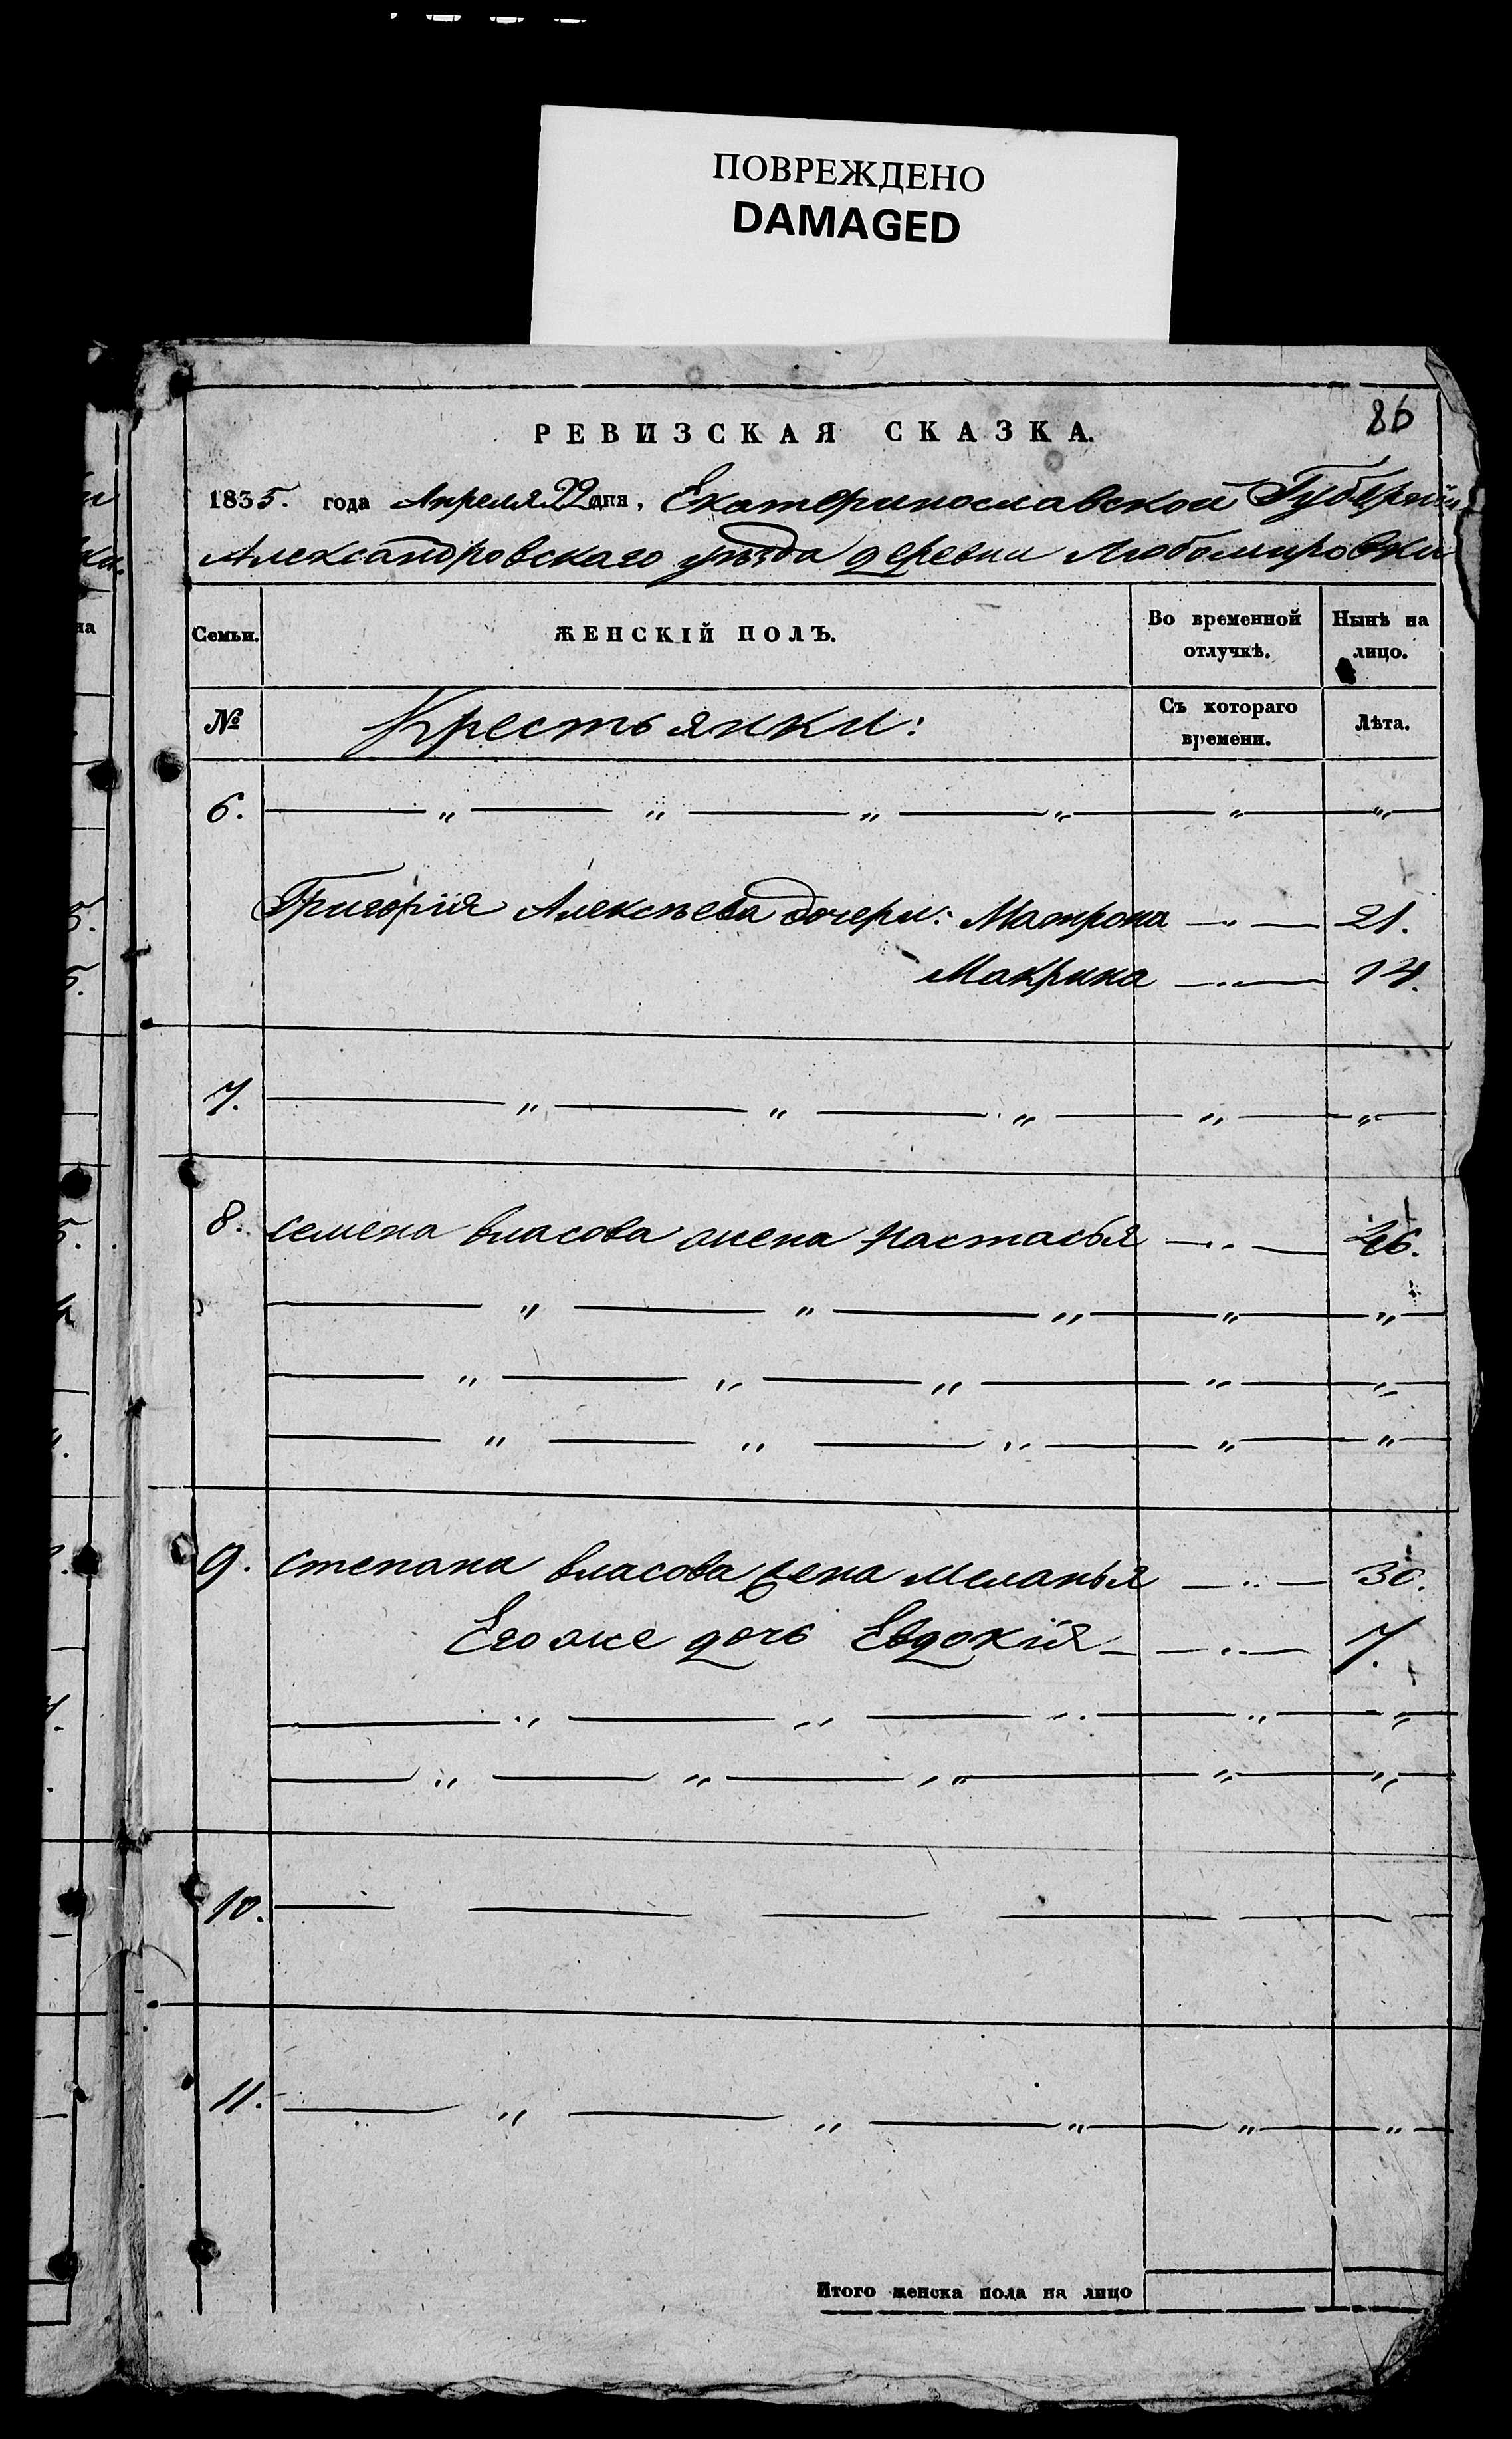 ПОВРЕЖДЕНО
DAMAGED
86
РЕВИЗСКАЯ СКАЗКА.
1835. года Апреля 22 дня, Екатеринославской Губерніи
Александровскаго уѣзда деревни Любомировки
Семьи. ЖЕНСКІЙ ПОЛЪ. Во временной отлучкѣ. Нынѣ на лицо.
№ Крестьянки: Съ котораго времени. Лѣта.
6. — „ — „ — „ — „ — „ — „ —
Григорія Алексѣева дочери: Матрона — „ — 21.
Макрина — „ — 14.
7. — „ — „ — „ — „ — „ —
8. семена власова жена Настасья — „ —
— „ — „ — „ — „ — „ —
— „ — „ — „ — „ — „ —
— „ — „ — „ — „ — „ —
9. степана власова жена Меланья — „ — 30.
Его же дочь Евдокія — „ — 7.
— „ — „ — „ — „ — „ —
— „ — „ — „ — „ — „ —
10. — — — — — — —
11. — „ — „ — „ — „ — „ —
Итого женска пола на лицо